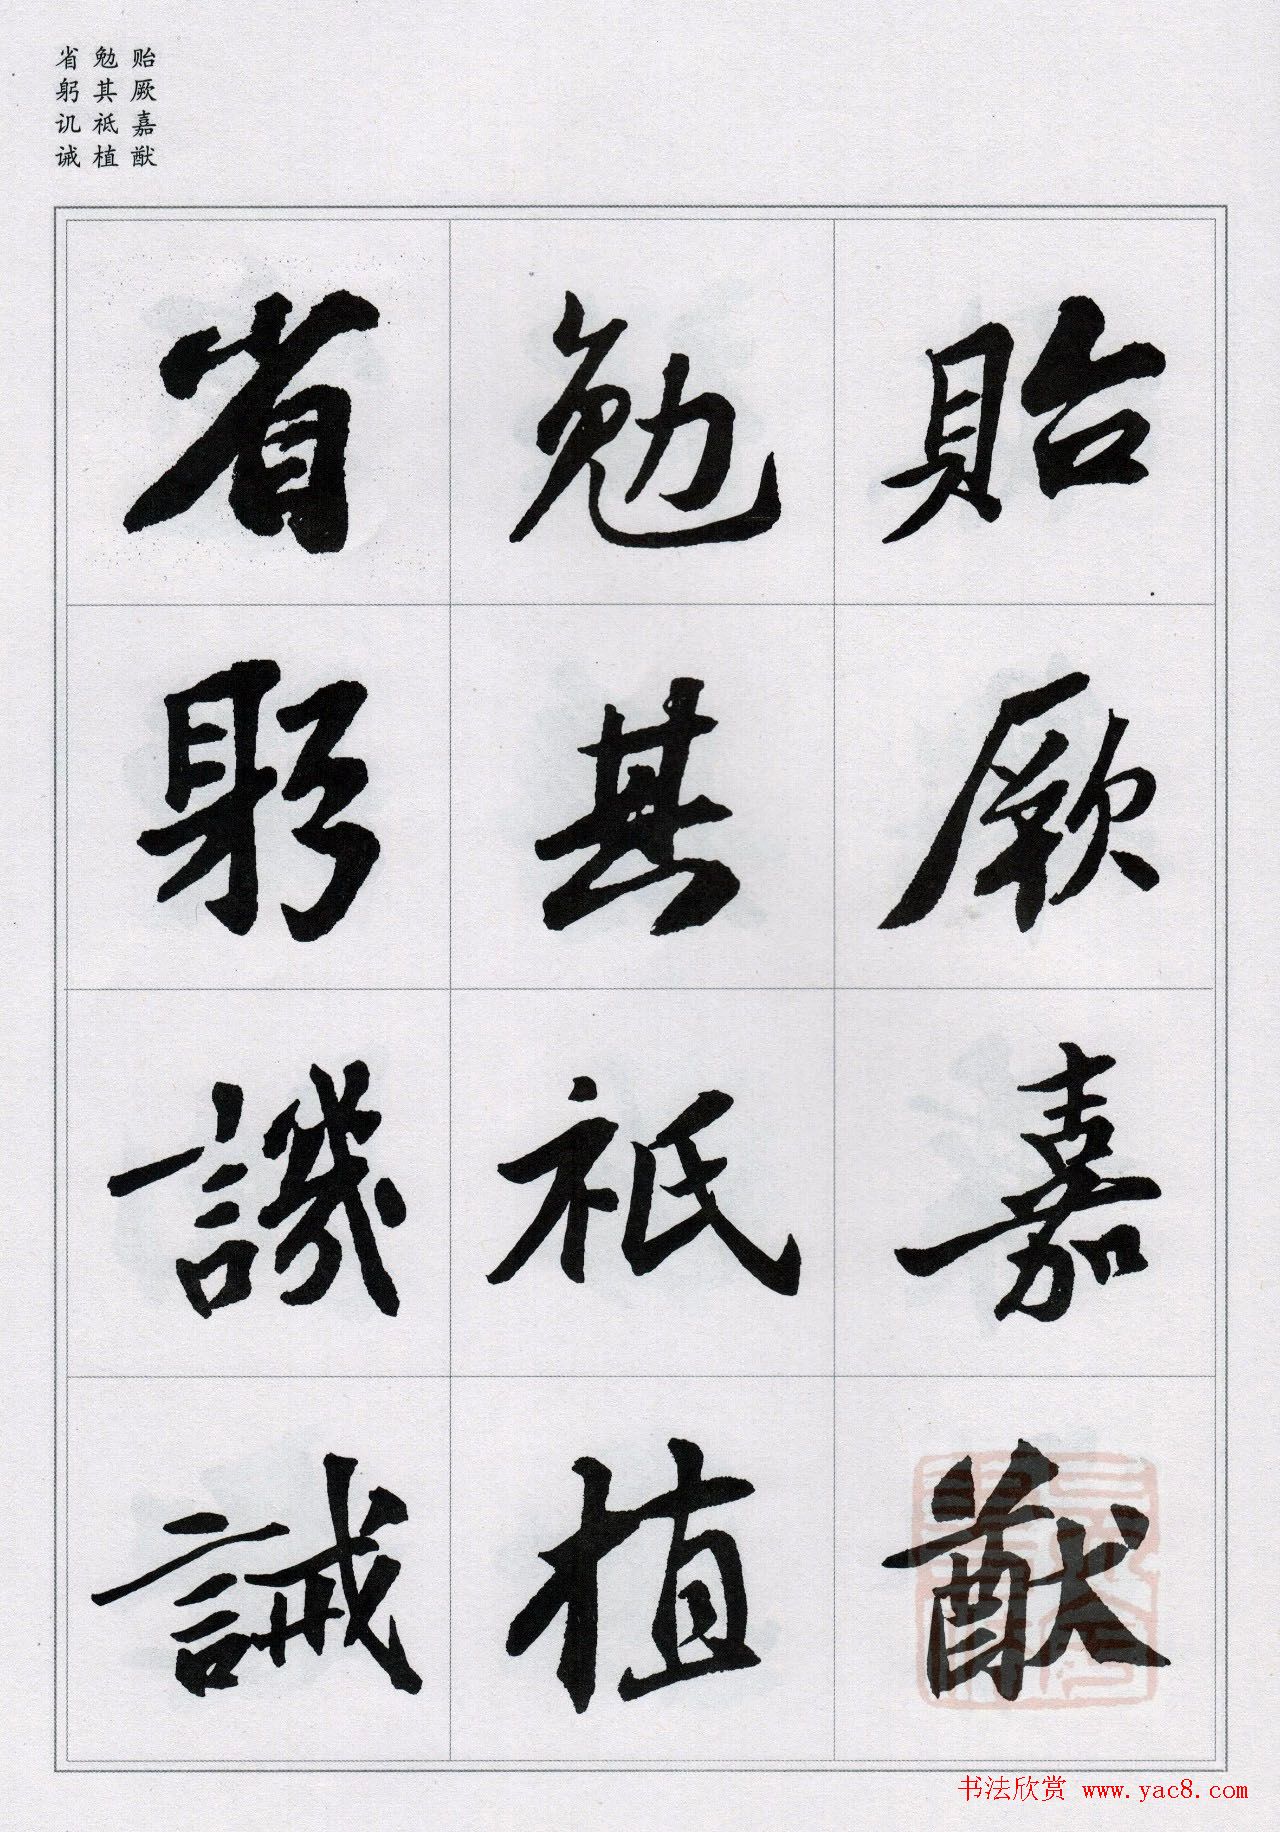 贻厥嘉猷
勉其祗植
省躬讥诫
貽厥嘉猷
勉其祗植
省躬譏誡
书法欣赏 www.yac8.com